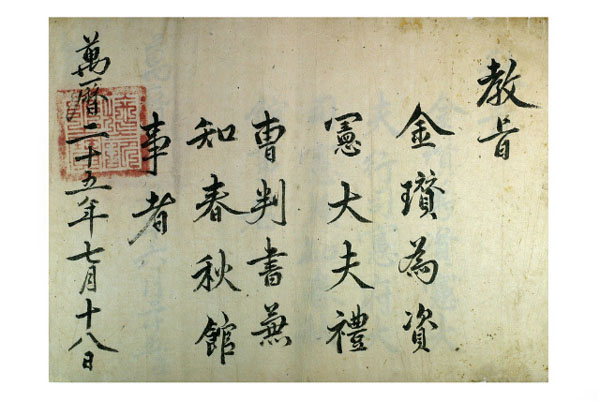 教旨
金瓚為資
憲大夫禮
曺判書兼
知春秋館
事者
萬曆二十五年七月十八日